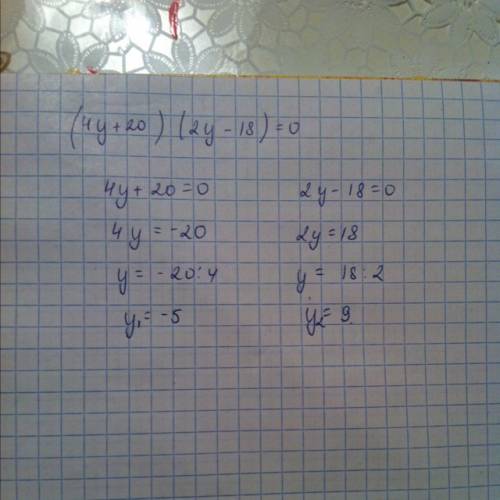 (4y+20) (2y-18)=0
4y+20=0
4y=-20
y=-20:4
y₁=-5
2y-18=0
2y=18
y=18:2
y₂=9